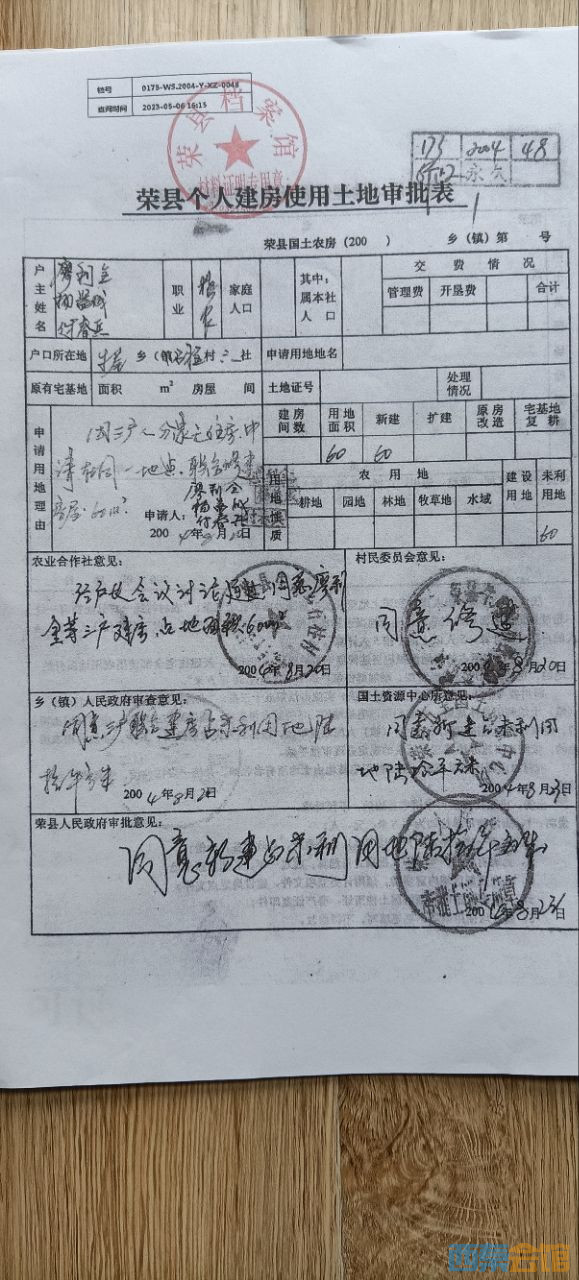 档号 0175-WS.2004-Y-XZ-0048
查阅时间 2023-05-06 16:15
荣县档案馆
材料证明专用章
173 2004 48
永久
荣县个人建房使用土地审批表
荣县国土农房(200 ) 乡(镇)第 号
户主姓名 职业 家庭人口 其中:属本社人口 交费情况
管理费 开垦费 合计
户口所在地 乡(镇) 村 社 申请用地地名
原有宅基地 面积 m² 房屋 间 土地证号 处理情况
申请用地理由
建房间数 用地面积 新建 扩建 原房改造 宅基地复耕
60 60
用地性质 农用地 建设用地 未利用地
耕地 园地 林地 牧草地 水域
60
因三户人分家无住房.申
请在同一地点.联合修建
房屋.60m².
申请人:
2004年8月20日
农业合作社意见:
同意廖利
全等三户建房占地面积60m²
2004年8月20日
村民委员会意见:
同意修建
2004年8月20日
乡(镇)人民政府审查意见:
同意三户联合建房占未利用地陆
拾平方米 2004年8月2日
国土资源中心所意见:
同意新建占未利用
地陆拾平方米
2004年8月23日
荣县人民政府审批意见:
同意新建占未利用地陆拾平方米
审批工作专用章
2004年8月23日